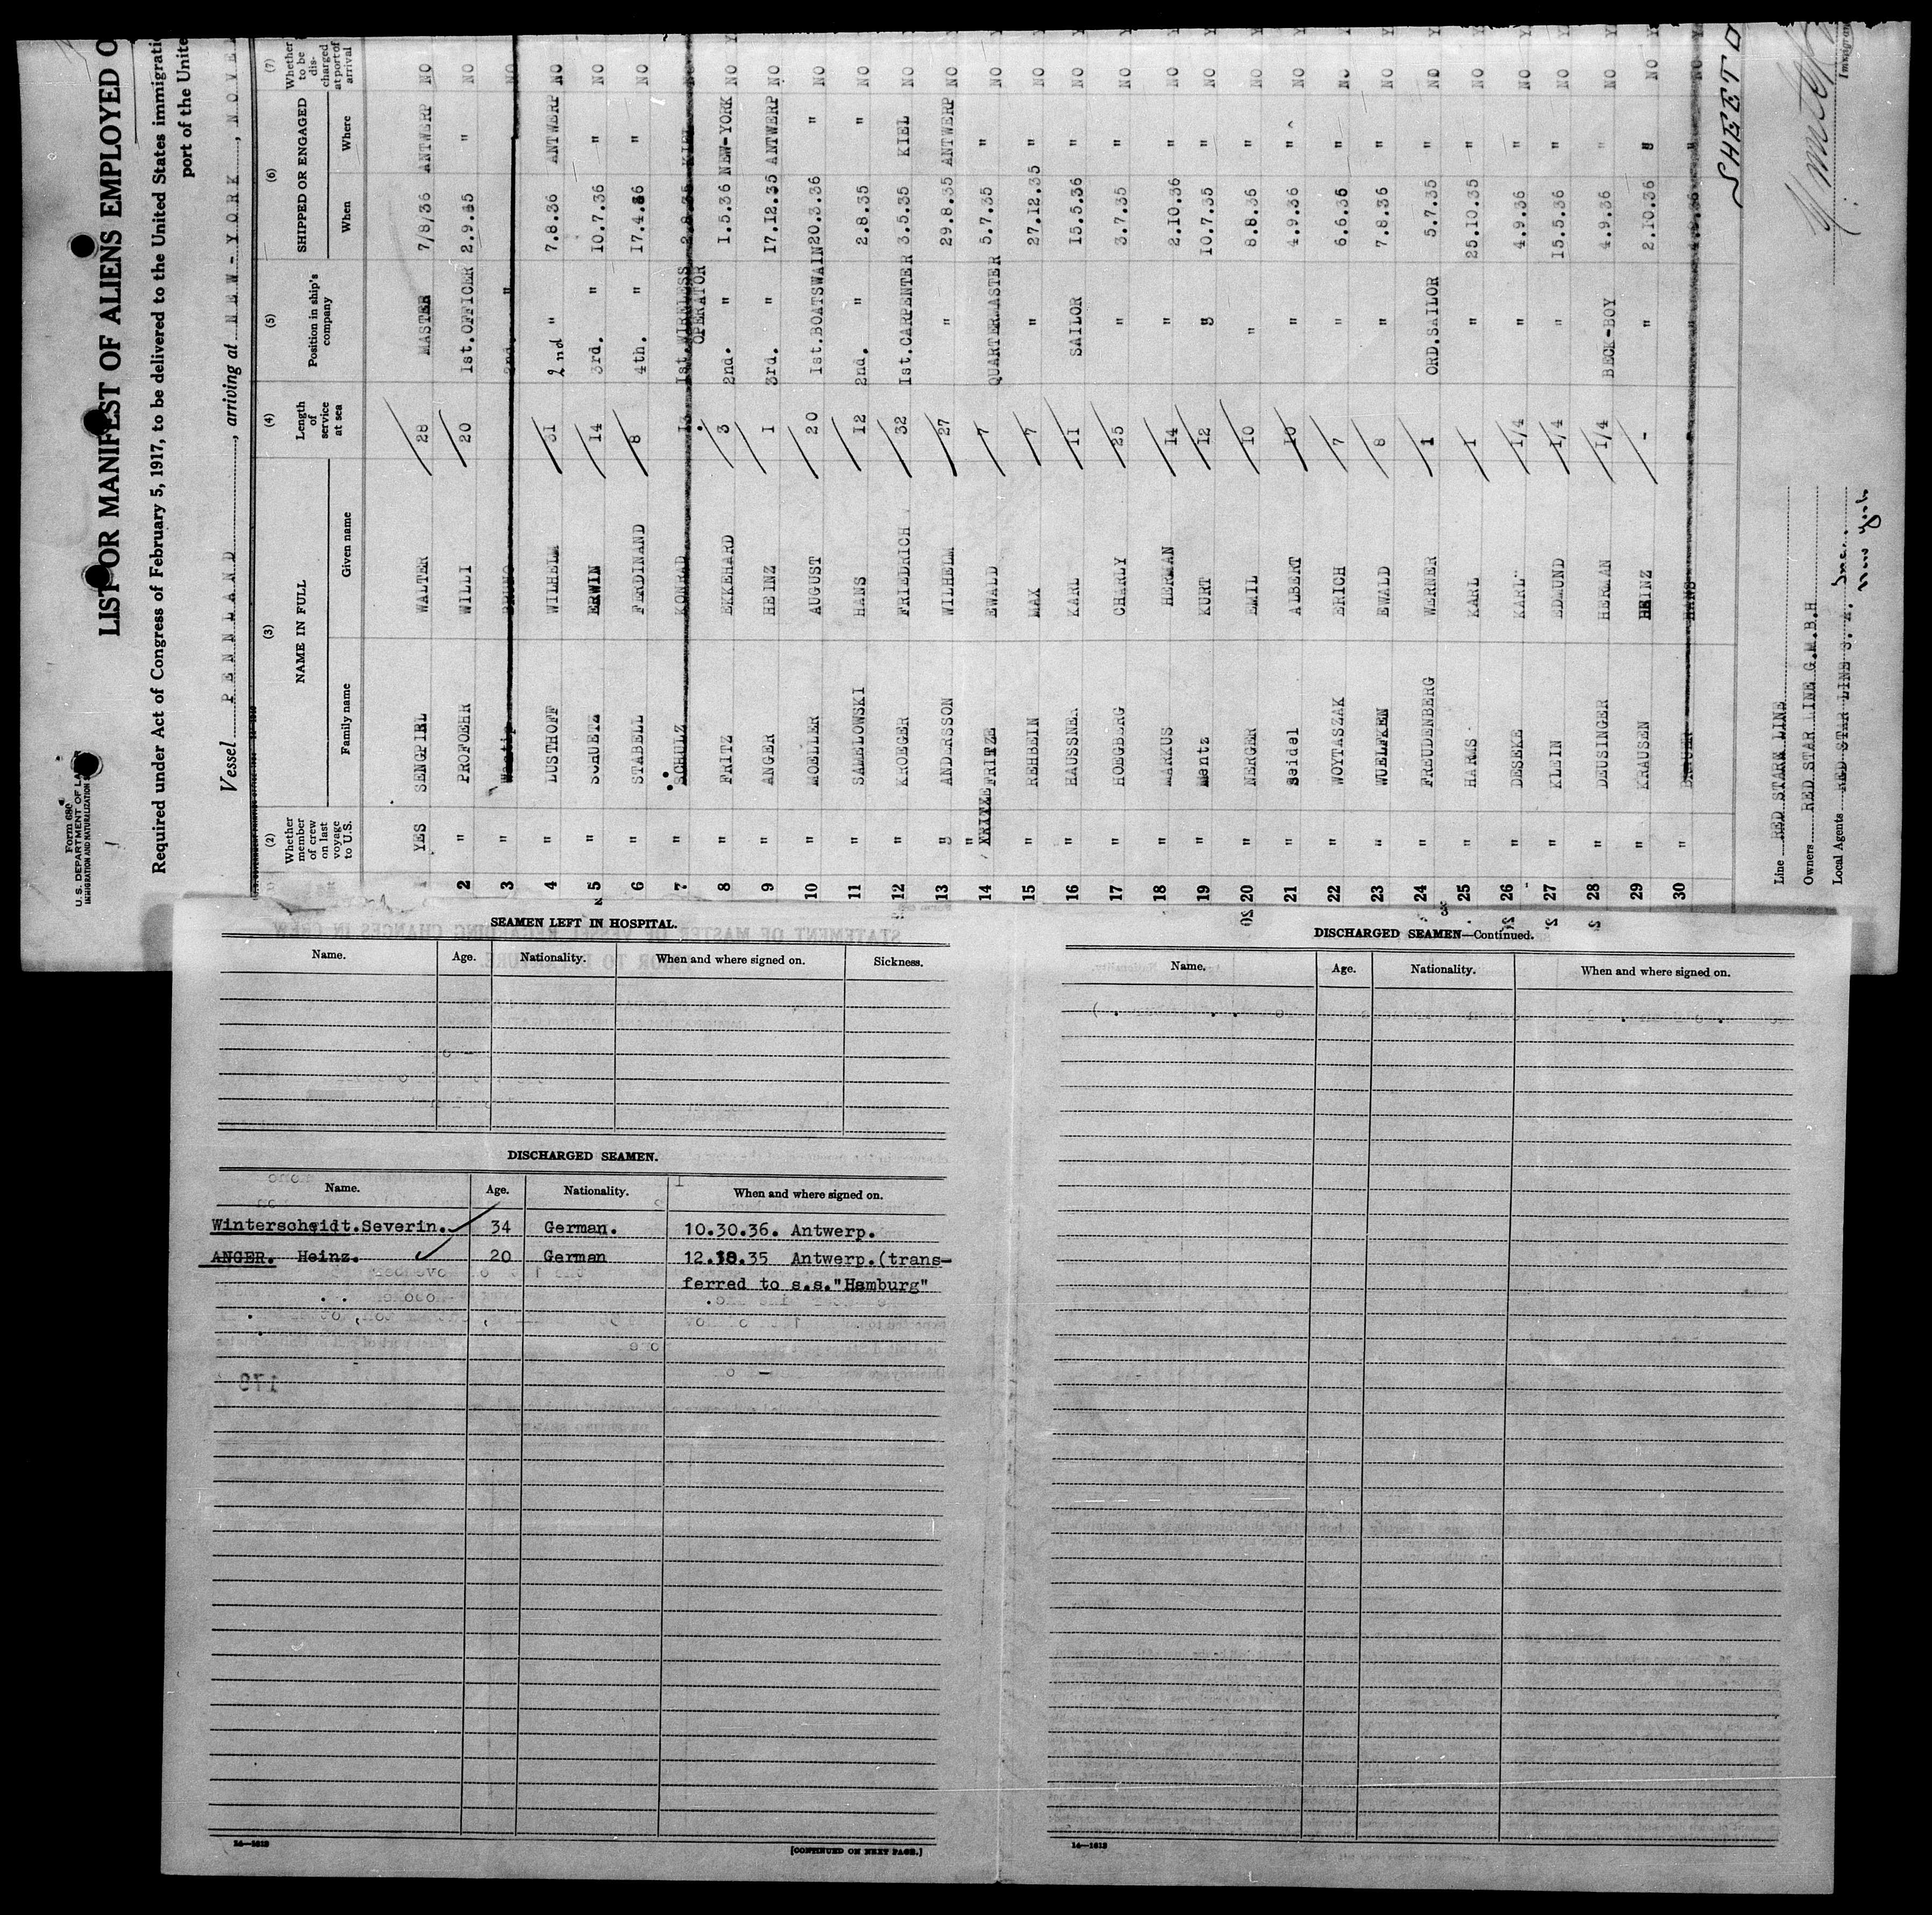 Form 680
U. S. DEPARTMENT OF LA
IMMIGRATION AND NATURALIZATION S
LIST OR MANIFEST OF ALIENS EMPLOYED O
Required under Act of Congress of February 5, 1917, to be delivered to the United States immigrati
port of the Unite
Vessel PENNLAND, arriving at NEW-YORK, NOVE
(2) (3) (4) (5) (6) (7)
Whether member of crew on last voyage to U.S. NAME IN FULL Length of service at sea Position in ship's company SHIPPED OR ENGAGED Whether to be discharged at port of arrival
Family name Given name When Where
YES SENGPIEL WALTER 28 MASTER 7/8/36 ANTWERP NO
2 " PROFOEHR WILLI 20 1st.OFFICER 2.9.35 " NO
3 " BRUNO 2nd. " NO
4 " LUSTHOFF WILHELM 31 2nd " 7.8.36 ANTWERP NO
5 " SCHUETZ ERWIN 14 3rd. " 10.7.36 " NO
6 " STABELL FERDINAND 8 4th. " 17.4.36 " NO
7 " SCHULZ KONRAD 13 1st.WIRELESS OPERATOR 2.8.35 KIEL NO
8 " FRITZ EKKEHARD 3 2nd. " 1.5.36 NEW-YORK NO Y
9 " ANGER HEINZ 1 3rd. " 17.12.35 ANTWERP NO
10 " MOELLER AUGUST 20 1st.BOATSWAIN 20.3.36 " NO
11 " SAMELOWSKI HANS 12 2nd. " 2.8.35 " NO
12 " KROEGER FRIEDRICH 32 1st.CARPENTER 3.5.35 KIEL NO
13 " ANDERSSON WILHELM 27 " 29.8.35 ANTWERP NO
14 " FRITZE FRITZE EWALD 7 QUARTERMASTER 5.7.35 " NO Y
15 " REHBEIN MAX 7 " 27.12.35 " NO Y
16 " HAUSSNER KARL 11 SAILOR 15.5.36 " NO Y
17 " HOEGBERG CHARLY 25 " 3.7.35 " NO Y
18 " MARKUS HERMAN 14 " 2.10.36 " NO Y
19 " Mantz KURT 12 " 10.7.35 " NO Y
20 " NERGER EMIL 10 " 8.8.36 " NO Y
21 " Seidel ALBERT 10 " 4.9.36 " NO Y
22 " WOYTASZAK ERICH 7 " 6.6.36 " NO Y
23 " WUELFKEN EWALD 8 " 7.8.36 " NO Y
24 " FREUDENBERG WERNER 1 ORD.SAILOR 5.7.35 " NO Y
25 " HARMS KARL 1 " 25.10.35 " NO Y
26 " DESEKE KARL 1/4 " 4.9.36 " NO Y
27 " KLEIN EDMUND 1/4 " 15.5.36 " NO Y
28 " DEUSINGER HERMAN 1/4 BECK-BOY 4.9.36 " NO Y
29 " KRAUSEN HEINZ - " 2.10.36 " NO Y
30 " HANS " " NO Y
SHEET
Line RED STARR LINE
Owners RED STAR LINE G.M.B.H
Local Agents RED STAR LINE S. A. Inc.
New York
Immigran
SEAMEN LEFT IN HOSPITAL.
Name. Age. Nationality. When and where signed on. Sickness.
DISCHARGED SEAMEN.
Name. Age. Nationality. When and where signed on.
Winterscheidt.Severin. 34 German. 10.30.36. Antwerp.
ANGER. Heinz. 20 German 12.18.35 Antwerp.(trans-
ferred to s.s."Hamburg"
14—1618
[CONTINUED ON NEXT PAGE.]
DISCHARGED SEAMEN—Continued.
Name. Age. Nationality. When and where signed on.
14—1618